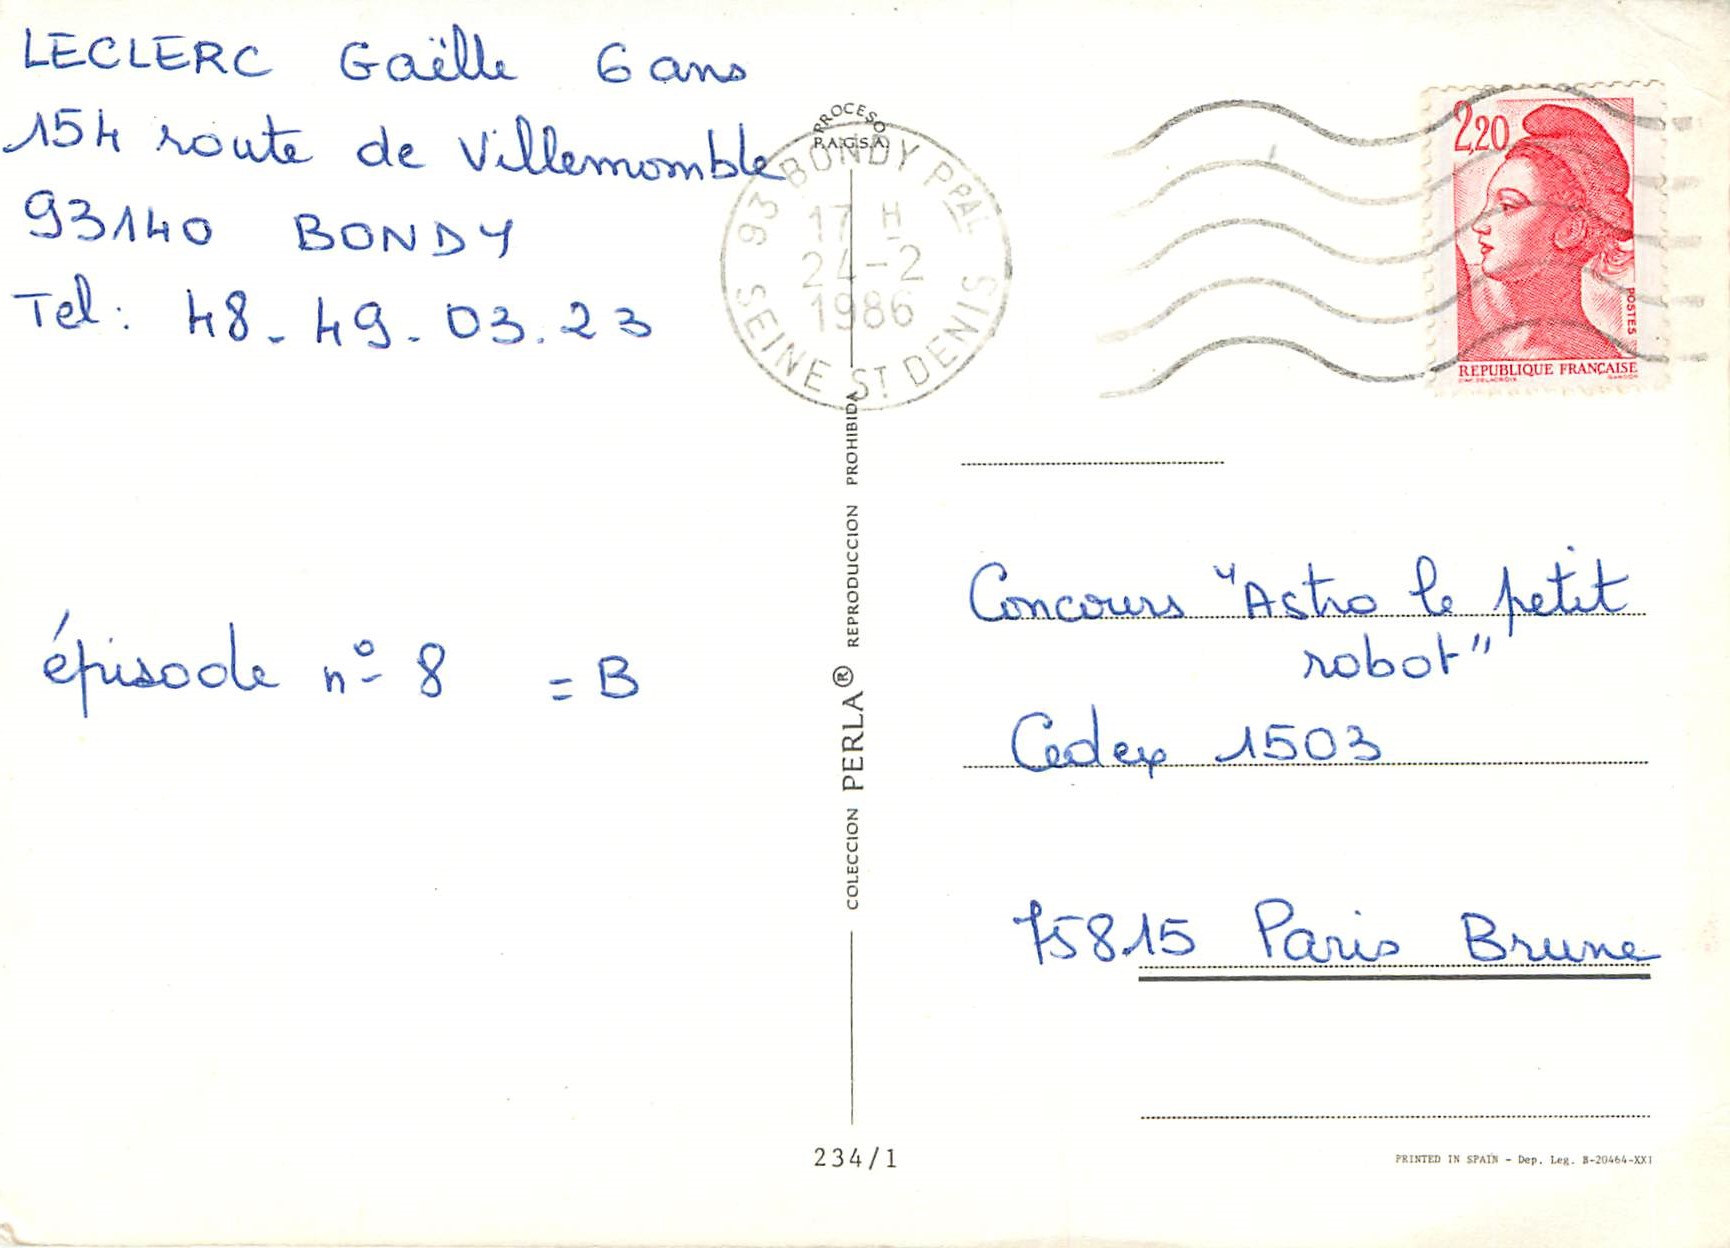 LECLERC Gaëlle 6 ans
154 route de Villemomble
93140 BONDY
Tel : 48. 49. 03. 23
épisode n° 8 = B
PROCESO
P.A.G.S.A.
93 BONDY PPAL
17 H
24-2
1986
SEINE ST DENIS
COLECCION PERLA® REPRODUCCION PROHIBIDA
234/1
2,20
POSTES
REPUBLIQUE FRANÇAISE
Concours "Astro le petit
robot"
Cedex 1503
75815 Paris Brune
PRINTED IN SPAIN - Dep. Leg. B-20464-XXI